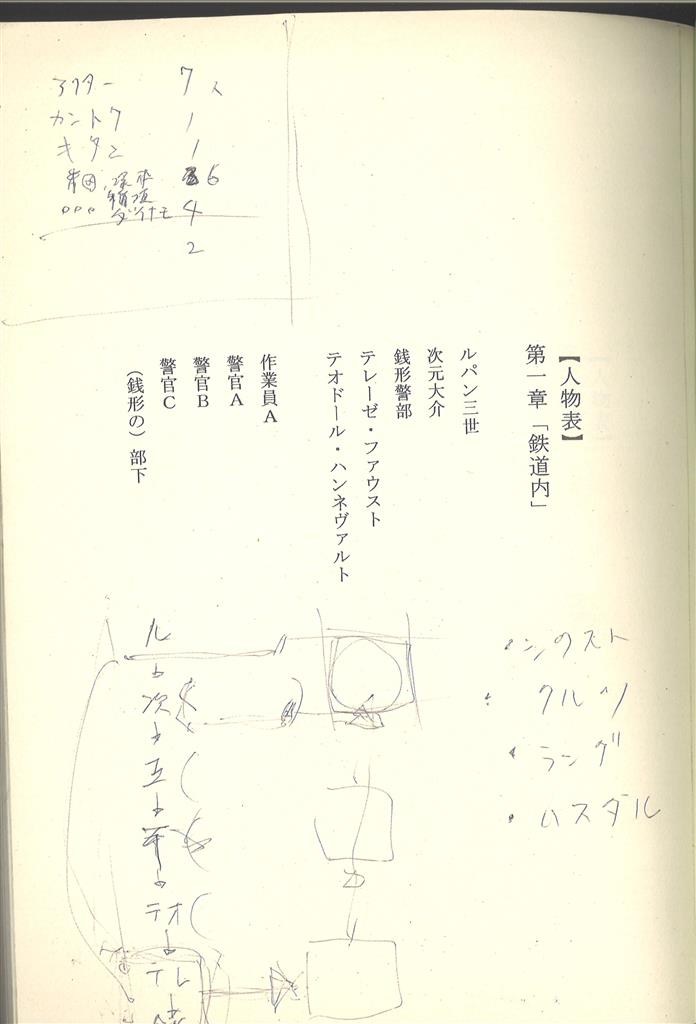 【人物表】
第一章「鉄道内」
ルパン三世
次元大介
銭形警部
テレーゼ・ファウスト
テオドール・ハンネヴァルト
作業員A
警官A
警官B
警官C
（銭形の）部下
アクター 7人
カントク 1
キタニ 1
6
ダイナモ 4
2
クルツ
ラング
ハスダル
ル
次
五
テオ
テレ